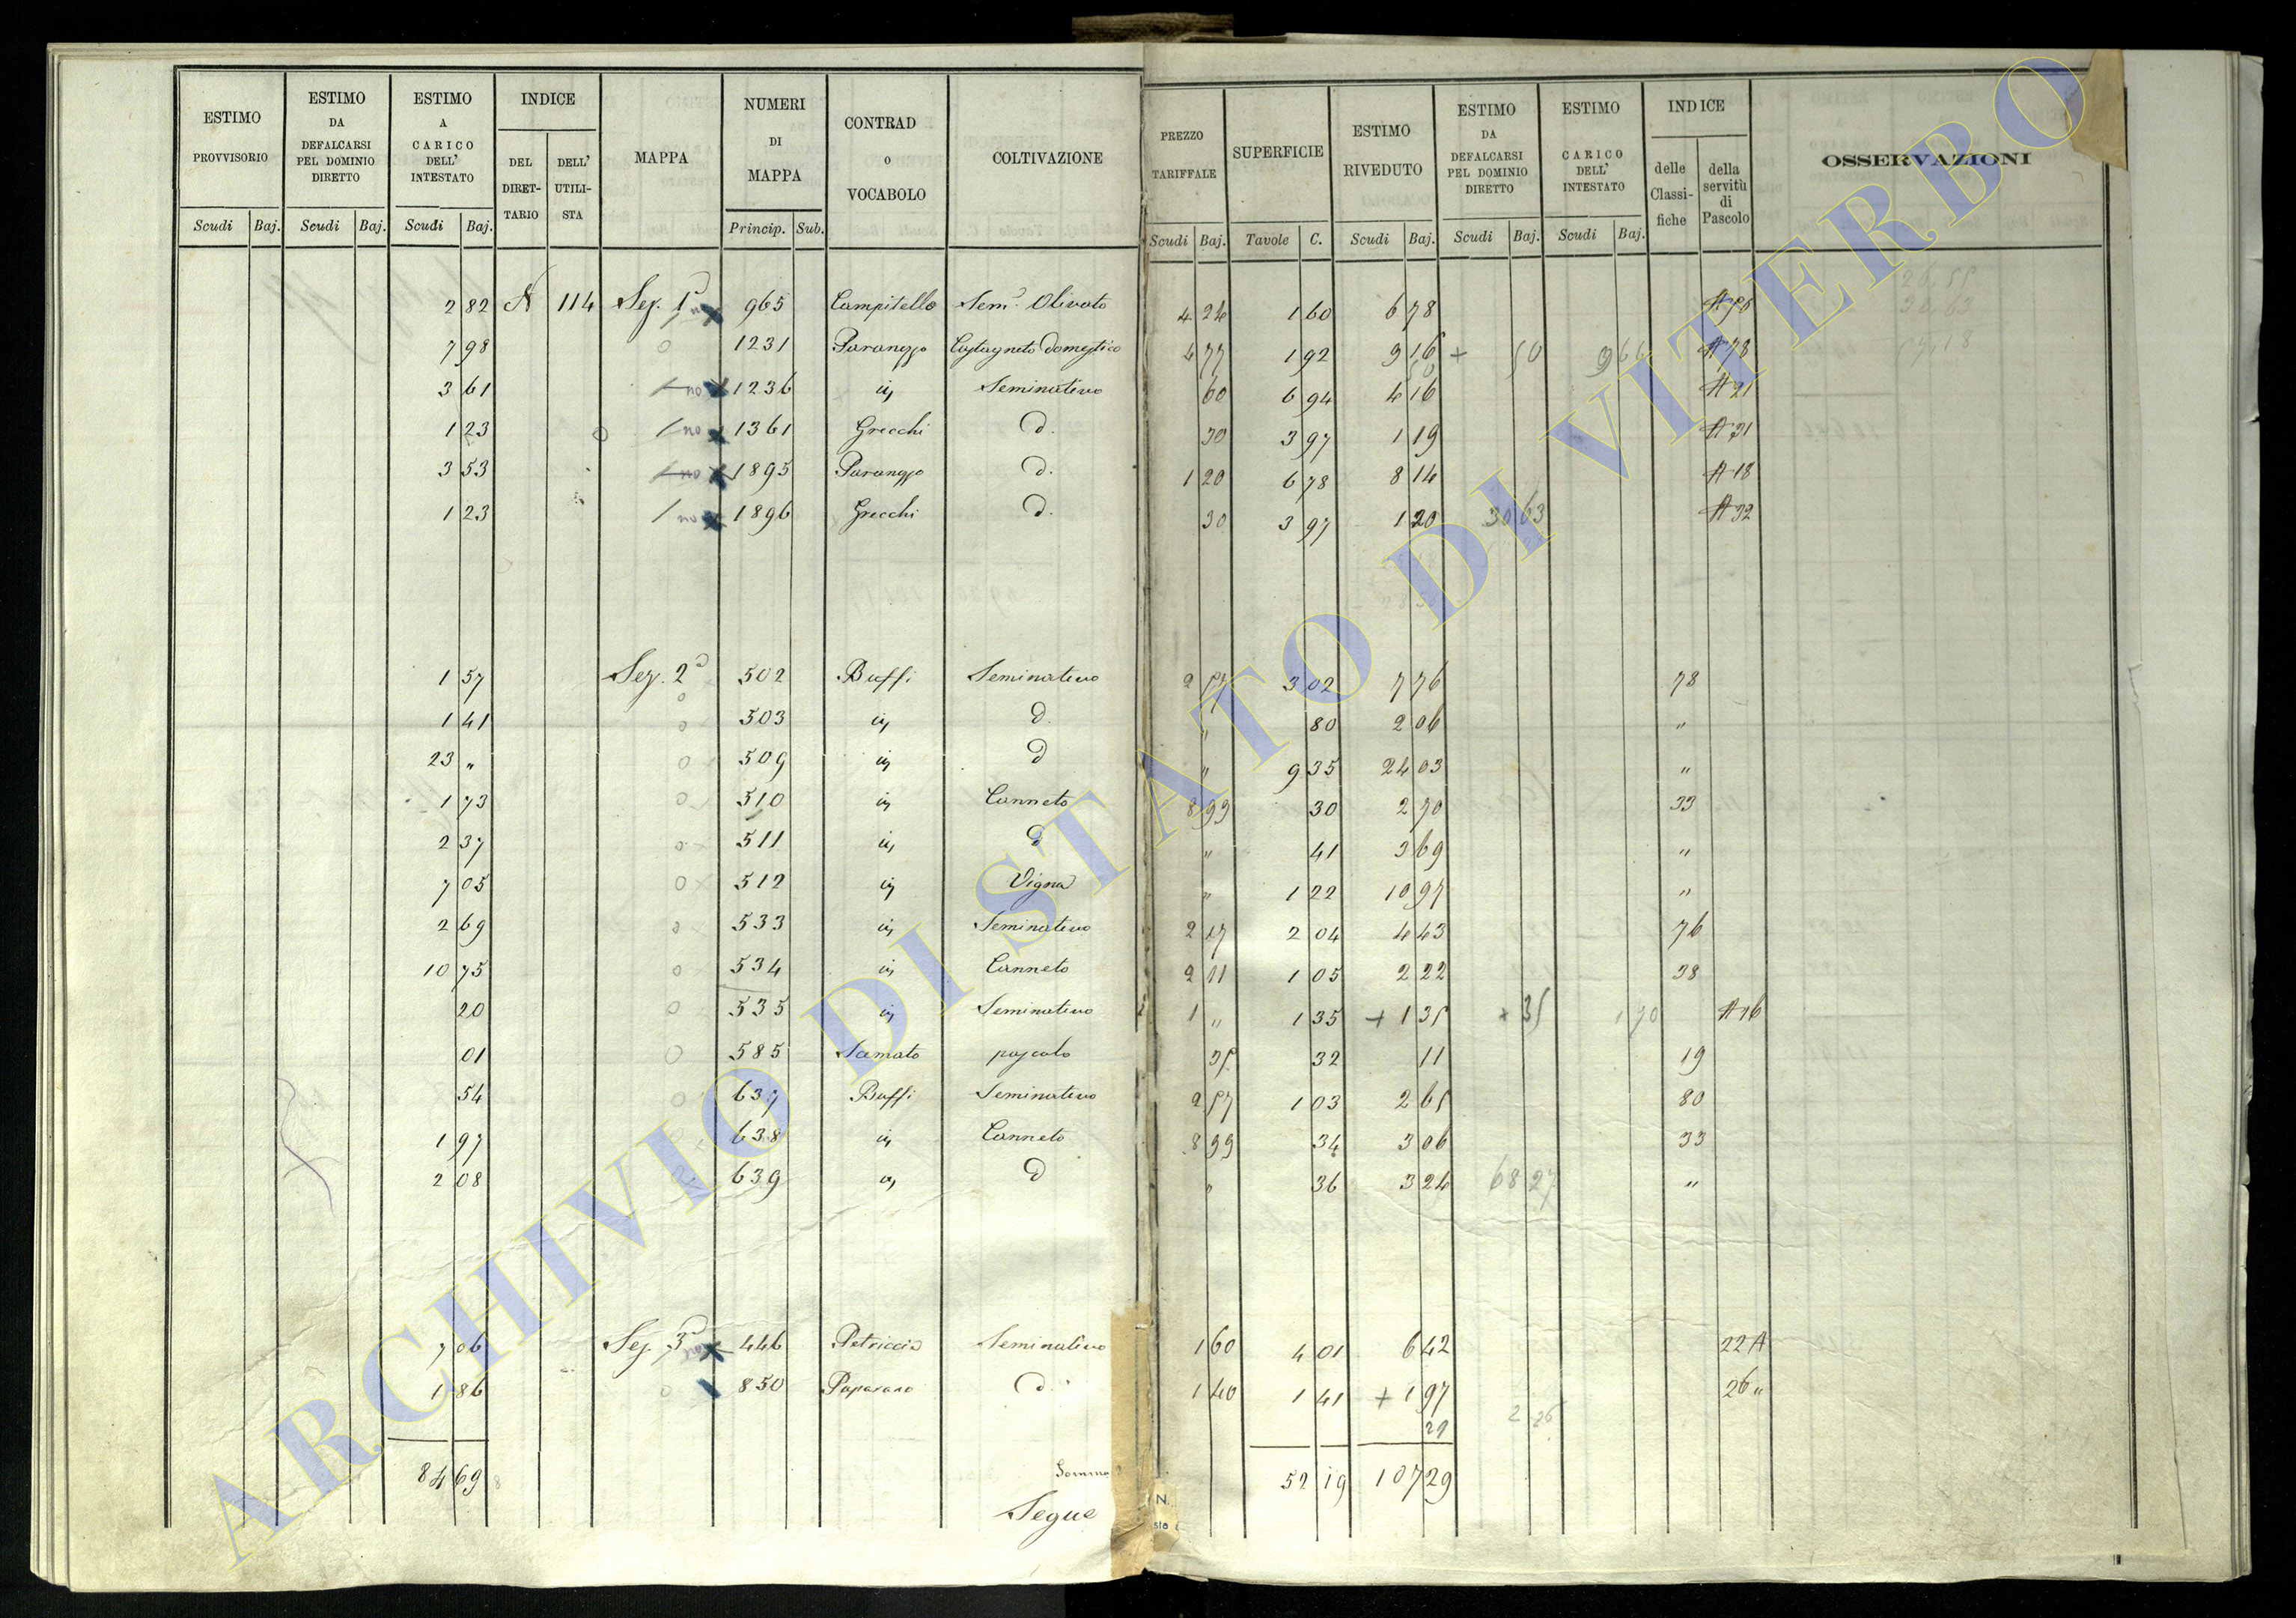 ESTIMO PROVVISORIO Scudi Baj. ESTIMO DA DEFALCARSI PEL DOMINIO DIRETTO Scudi Baj. ESTIMO A CARICO DELL' INTESTATO Scudi Baj. INDICE DEL DIRET-TARIO DELL' UTILI-STA MAPPA NUMERI DI MAPPA Princip. Sub. CONTRAD o VOCABOLO COLTIVAZIONE PREZZO TARIFFALE Scudi Baj. SUPERFICIE Tavole C. ESTIMO RIVEDUTO Scudi Baj. ESTIMO DA DEFALCARSI PEL DOMINIO DIRETTO Scudi Baj. ESTIMO CARICO DELL' INTESTATO Scudi Baj. INDICE delle Classi-fiche della servitù di Pascolo OSSERVAZIONI
2 82 A 114 Sez. 1ª no 965 Campitello Sem.º Olivato 4 24 1 60 6 78
7 98 0 1231 Castagneto Domestico 4 77 1 92 9 16 + 50 9 66 A 78
3 61 no 1236 id Seminativo 60 6 94 4 16 A 21
1 23 no 1361 Grecchi d. 30 3 97 1 19 A 31
3 53 no 1895 d. 1 20 6 78 8 14 A 18
1 23 no 1896 Grecchi d. 30 3 97 1 20 30 63 A 32
1 57 Sez. 2ª 0 502 Buffi Seminativo 2 57 3 02 7 76 78
1 41 0 503 id d. " 80 2 06 "
23 " 0 509 id d " 9 35 24 03 "
1 73 0 510 id Canneto 8 99 30 2 70 33
2 37 0 511 id d " 41 3 69 "
7 05 0 512 id Vigna " 1 22 10 97 "
2 69 0 533 id Seminativo 2 17 2 04 4 43 76
10 75 0 534 id Canneto 2 11 1 05 2 22 38
20 0 535 id Seminativo 1 " 1 35 + 1 35 + 35 1 70 A 16
01 0 585 Scamato pascolo 35 32 11 19
54 0 637 Buffi Seminativo 2 57 1 03 2 65 80
1 97 0 638 id Canneto 8 99 34 3 06 33
2 08 0 639 id d " 36 3 24 68 27 "
7 06 Sez. 3ª 446 Petriccia Seminativo 1 60 4 01 6 42 22 A
1 86 0 850 Paparano d. 1 40 1 41 + 1 97 26 "
29 2 26
84 69 8 Somma 52 19 107 29
Segue
N.
ARCHIVIO DI STATO DI VITERBO